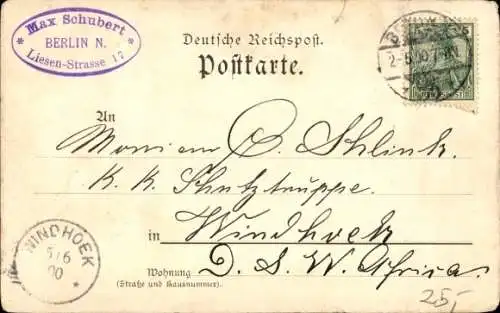 Max Schubert
BERLIN N.
Liesen-Strasse 17
Deutsche Reichspost.
Postkarte.
5
2-5
An
Monsieur C. Schlink.
K. K. Schutztruppe.
in Windhoek
Wohnung D. S. W. Africa.
(Straße und Hausnummer).
WINDHOEK
5/6
00
25,-